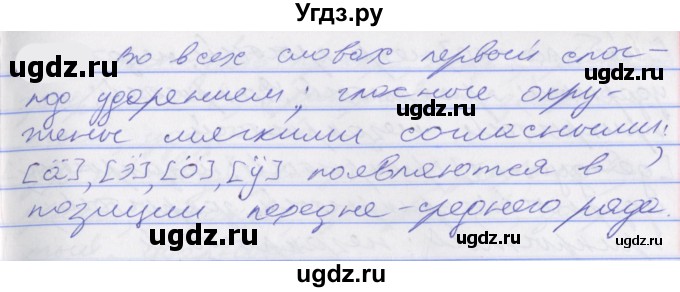 Угдз.ру
Во всех словах первый слог
под ударением; гласные окру-
жены мягкими согласными;
[ӓ], [ӭ], [ӧ], [ӱ] появляются в
позиции передне-среднего ряда.
ugdz.ru ugdz.ru ugdz.ru
ugdz.ru ugdz.ru
ugdz.ru ugdz.ru
ugdz.ru